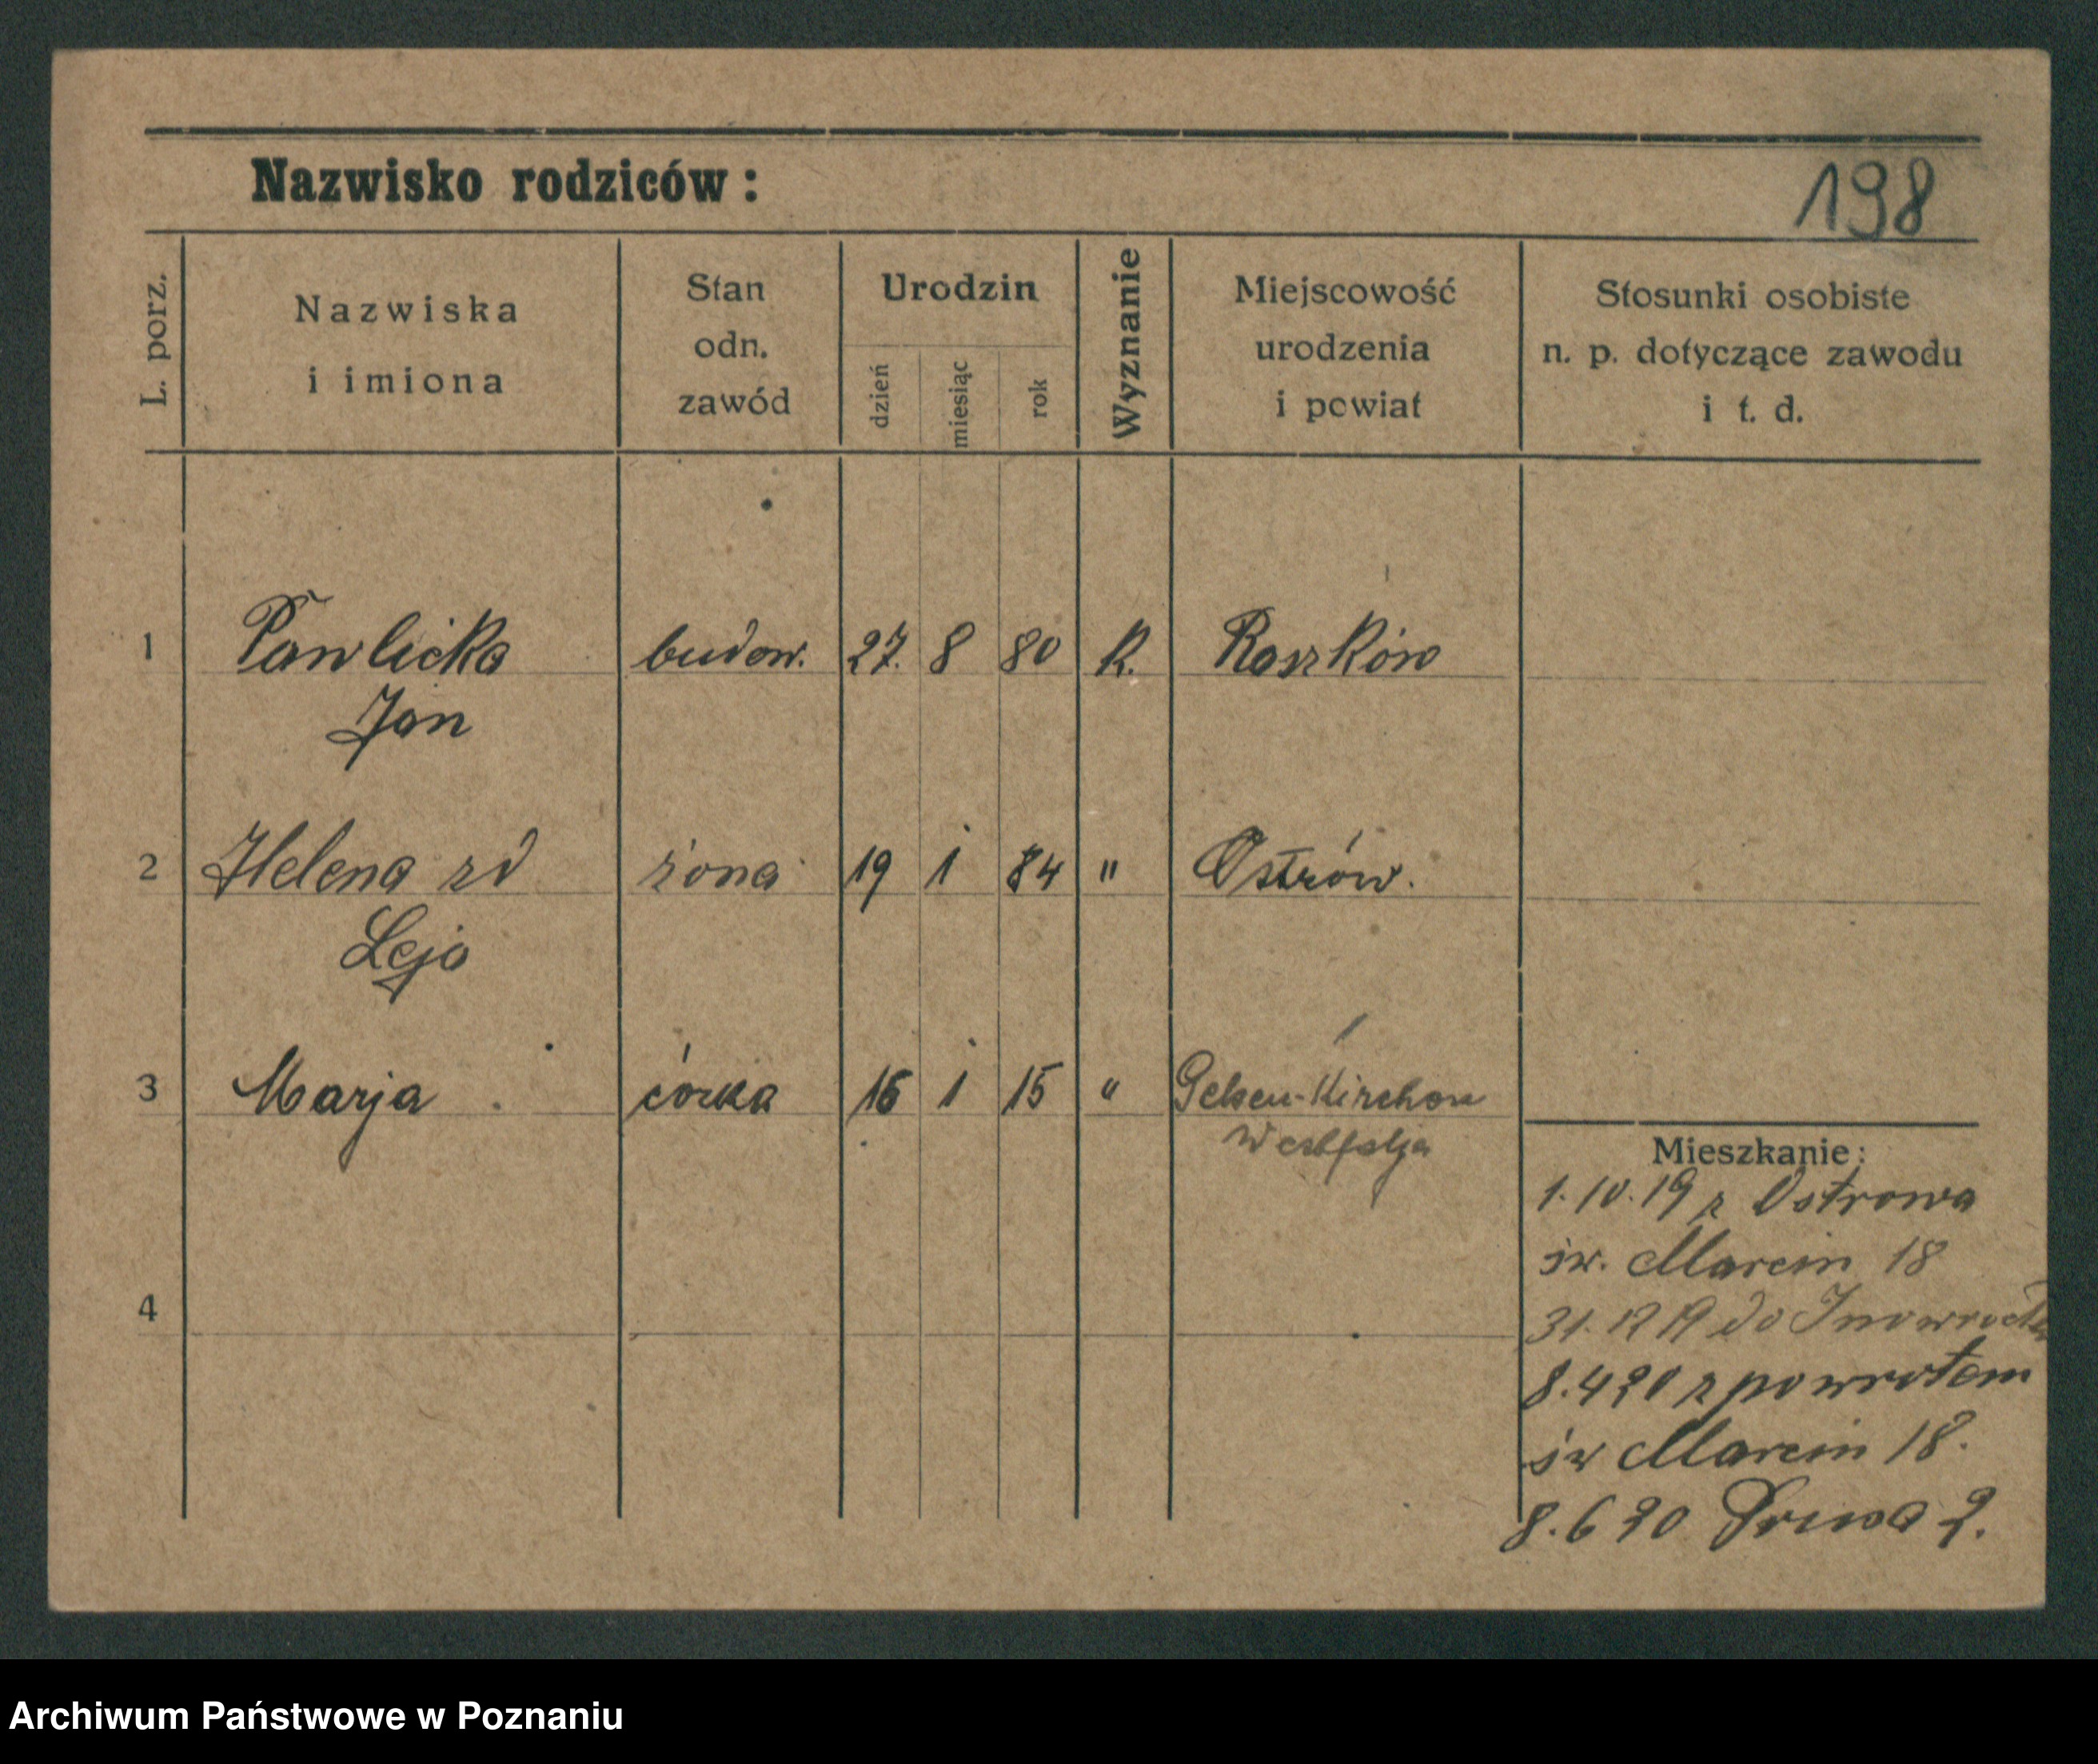 Nazwisko rodziców:
198
L. porz.
Nazwiska
i imiona
Stan
odn.
zawód
Urodzin
dzień
miesiąc
rok
Wyznanie
Miejscowość
urodzenia
i powiat
Stosunki osobiste
n. p. dotyczące zawodu
i t. d.
1 Pawlicka budow. 27. 8 80 K. Roszków
Jan
2 Helena zd żona 19 1 84 " Ostrów.
Leja
3 Marja córka 16 1 15 " Gelsen-Kirchen
Westfalja
Mieszkanie:
1.10.19 z Ostrowa
św. Marcin 18
4
31.12 19 do Inowrocła
8.4 20 z powrotem
św Marcin 18.
8.6 20 2.
Archiwum Państwowe w Poznaniu